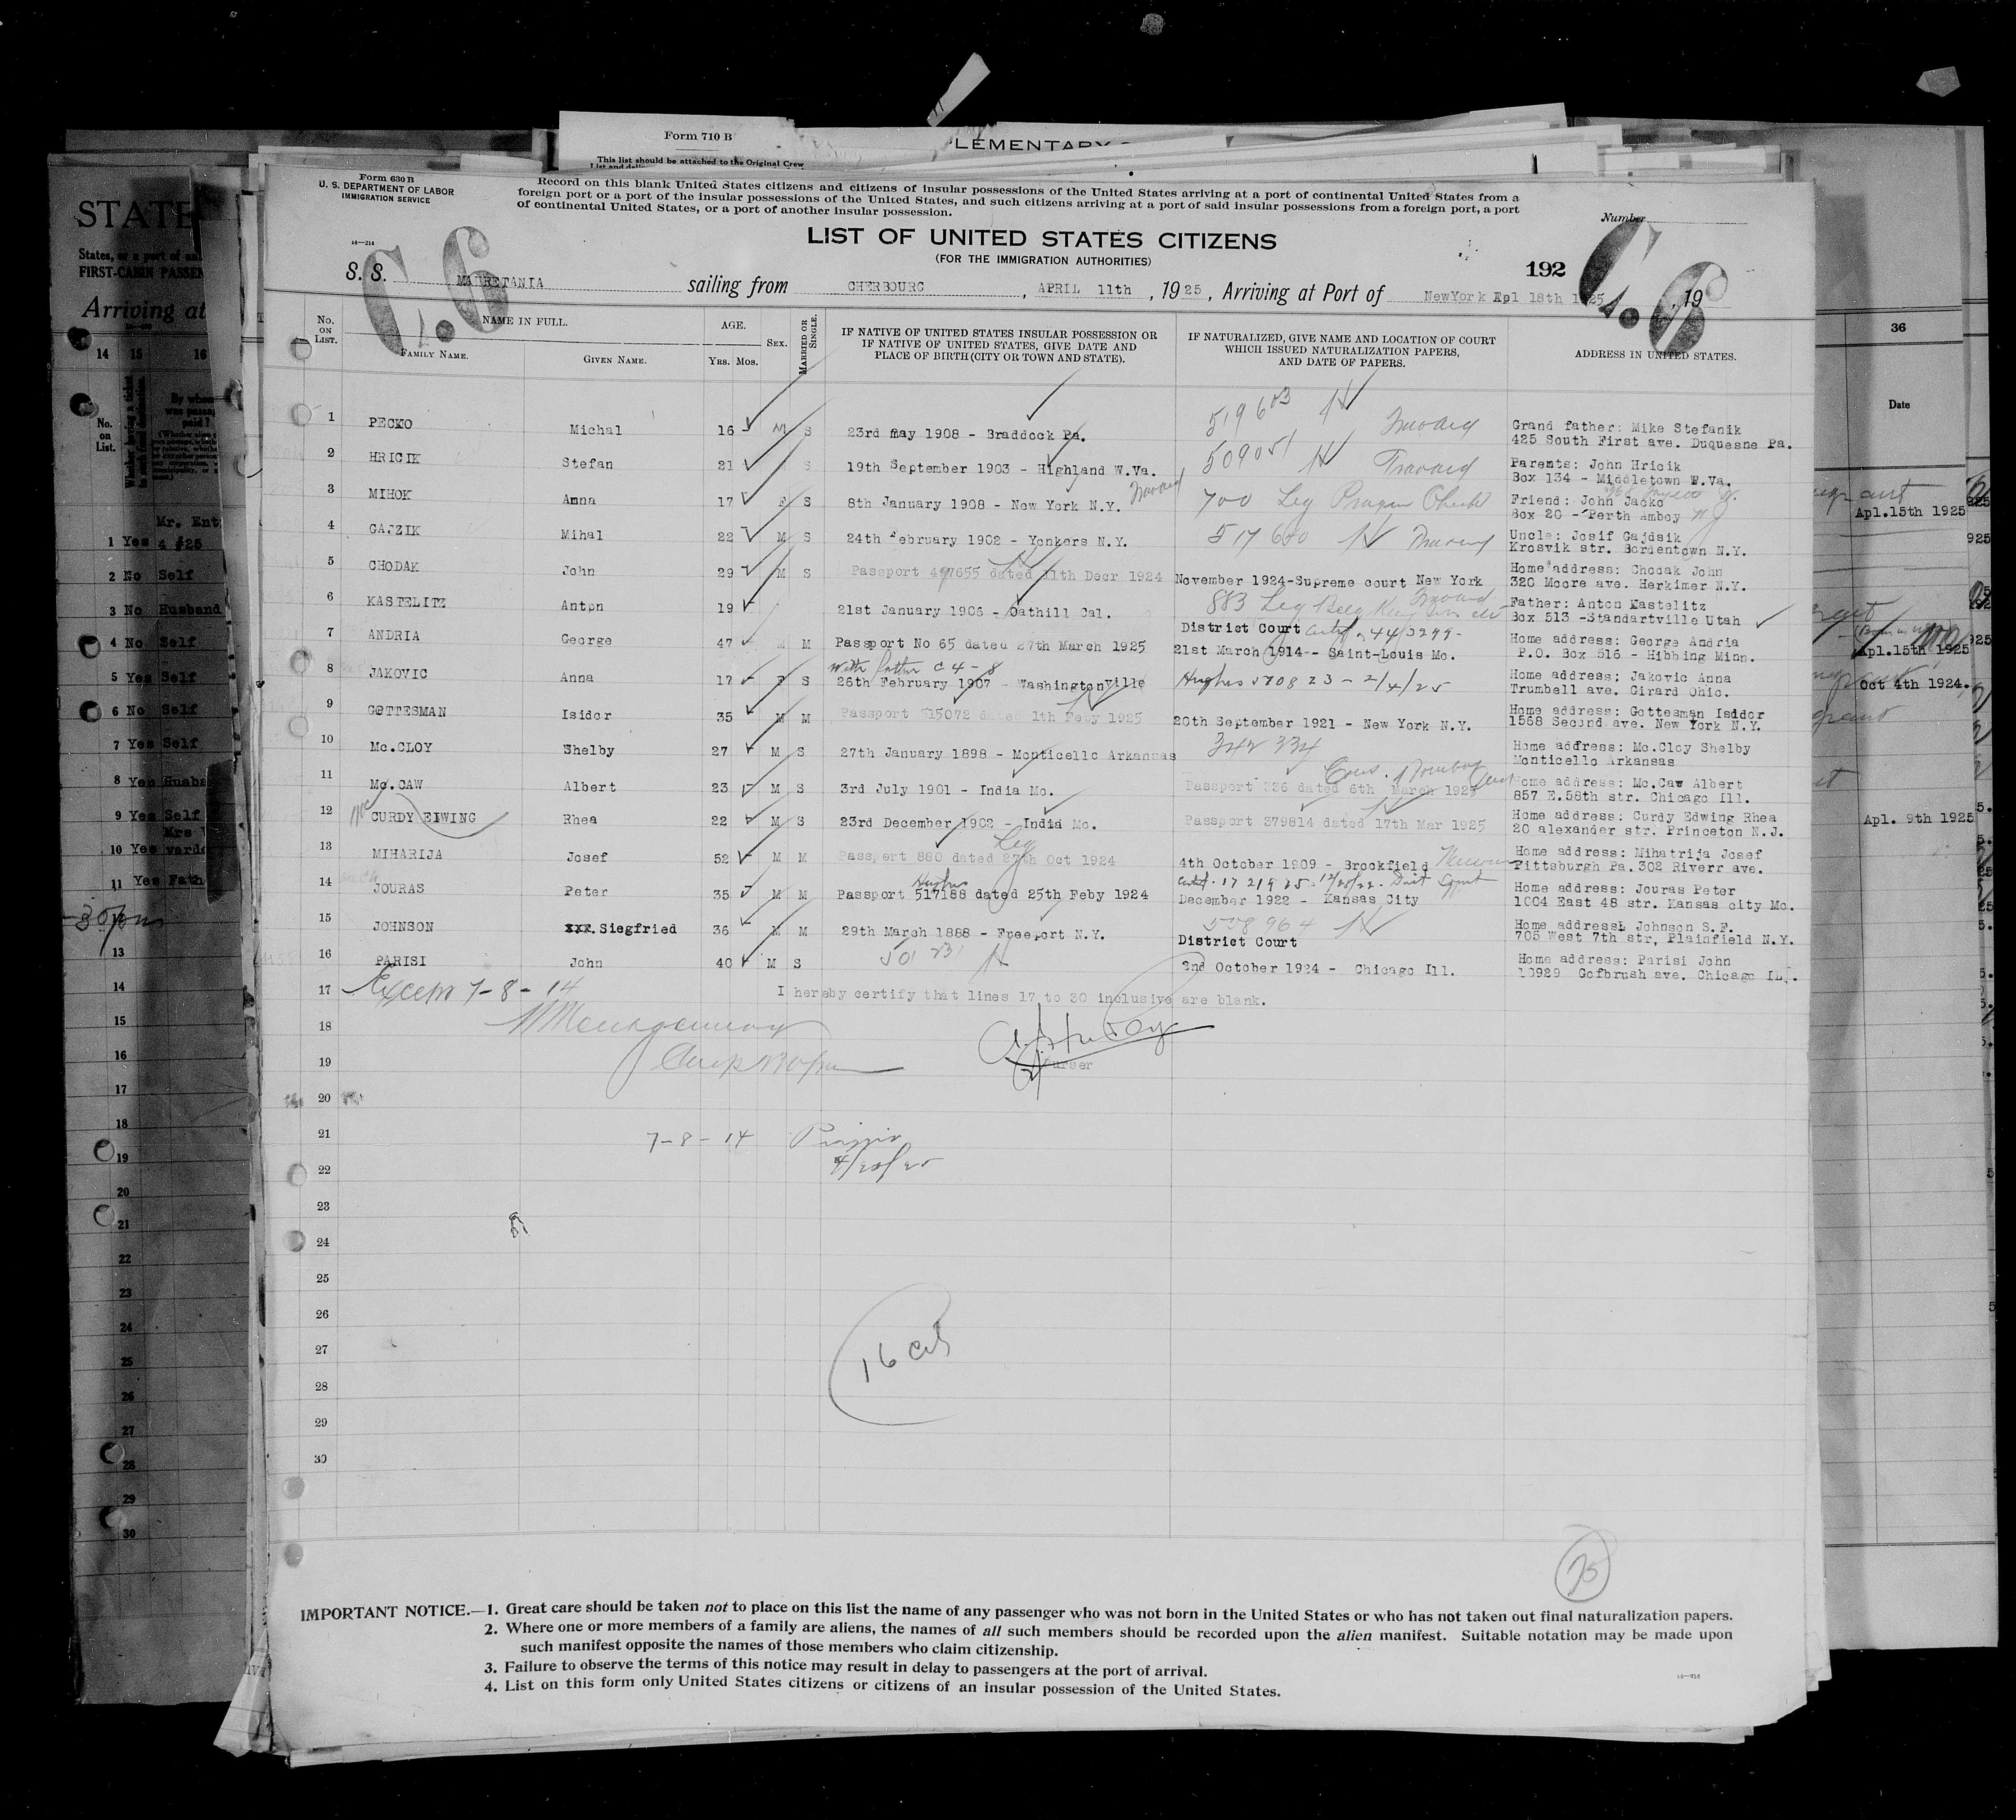 Form 710 B
This list should be attached to the Original Crew
LEMENTARY
Form 630 B
U. S. DEPARTMENT OF LABOR
IMMIGRATION SERVICE
14—214
Record on this blank United States citizens and citizens of insular possessions of the United States arriving at a port of continental United States from a
foreign port or a port of the insular possessions of the United States, and such citizens arriving at a port of said insular possessions from a foreign port, a port
of continental United States, or a port of another insular possession.
Number
LIST OF UNITED STATES CITIZENS
(FOR THE IMMIGRATION AUTHORITIES)
192
C.6
C.6
S. S. MAURETANIA sailing from CHERBOURG, APRIL 11th, 1925, Arriving at Port of NewYork Apl 18th 1925, 19
No. ON LIST.
NAME IN FULL.
FAMILY NAME.
GIVEN NAME.
AGE.
YRS. MOS.
SEX.
MARRIED OR SINGLE.
IF NATIVE OF UNITED STATES INSULAR POSSESSION OR
IF NATIVE OF UNITED STATES, GIVE DATE AND
PLACE OF BIRTH (CITY OR TOWN AND STATE).
IF NATURALIZED, GIVE NAME AND LOCATION OF COURT
WHICH ISSUED NATURALIZATION PAPERS,
AND DATE OF PAPERS.
ADDRESS IN UNITED STATES.
1 PECKO Michal 16 M S 23rd may 1908 - Braddock Pa. 519603 Grand father: Mike Stefanik
425 South First ave. Duquesne Pa.
2 HRICIK Stefan 21 S 19th September 1903 - Highland W.Va. 509051 Parents: John Hricik
Box 134 - Middletown W.Va.
3 MIHOK Anna 17 F S 8th January 1908 - New York N.Y. 700 Leg Friend: John Jacko
Box 20 - Perth Amboy NJ
4 GAJZIK Mihal 22 M S 24th February 1902 - Yonkers N.Y. 517600 Uncle: Josif Gajdsik
Krosvik str. Bordentown N.Y.
5 CHODAK John 29 M S Passport 497655 dated 11th Decr 1924 November 1924-Supreme court New York Home address: Chodak John
320 Moore ave. Herkimer N.Y.
6 KASTELITZ Anton 19 21st January 1906 - Oathill Cal. 883 Leg Father: Anton Kastelitz
Box 513 -Standartville Utah
7 ANDRIA George 47 M M Passport No 65 dated 27th March 1925 District Court
21st March 1914-- Saint-Louis Mo. Home address: George Andria
P.O. Box 516 - Hibbing Minn.
With father C 4 - 8
8 JAKOVIC Anna 17 F S 26th February 1907 - Washingtonville Hughes 570823 - 2/4/25 Home address: Jakovic Anna
Trumbell ave. Girard Ohio.
9 GOTTESMAN Isidor 35 M M Passport 515072 dated 1th Feby 1925 20th September 1921 - New York N.Y. Home address: Gottesman Isidor
1568 Second ave. New York N.Y.
10 Mc.CLOY Shelby 27 M S 27th January 1898 - Monticello Arkansas 342334 Home address: Mc.Cloy Shelby
Monticello Arkansas
11 Mc.CAW Albert 23 M S 3rd July 1901 - India Mo. Passport 336 dated 6th March 1925 Home address: Mc.Caw Albert
857 E.58th str. Chicago Ill.
12 Mc CURDY EIWING Rhea 22 M S 23rd December 1902 - India Mo. Passport 379814 dated 17th Mar 1925 Home address: Curdy Edwing Rhea
20 alexander str. Princeton N.J.
13 MIHARIJA Josef 52 M M Passport 880 dated 27th Oct 1924 Leg 4th October 1909 - Brookfield Home address: Mihatrija Josef
Pittsburgh Pa.302 Riverr ave.
14 JOURAS Peter 35 M M Hughes
Passport 517188 dated 25th Feby 1924 Certf. 1721925 - 12/20/22. Dist Court
December 1922 - Kansas City Home address: Jouras Peter
1004 East 48 str. Kansas city Mo.
15 JOHNSON xxx.Siegfried 36 M M 29th March 1888 - Freeport N.Y. 508964 Home addressL Johnson S.F.
705 West 7th str, Plainfield N.Y.
16 PARISI John 40 M S 50123 District Court
2nd October 1924 - Chicago Ill. Home address: Parisi John
10929 Gofbrush ave. Chicago Il.
17 Except 7-8-14 I hereby certify that lines 17 to 30 inclusive are blank.
18
19 Purser
20
21 7-8-14
22 4/20/25
23
24
25
26
27 16 Cit
28
29
30
75
IMPORTANT NOTICE.—1. Great care should be taken not to place on this list the name of any passenger who was not born in the United States or who has not taken out final naturalization papers.
2. Where one or more members of a family are aliens, the names of all such members should be recorded upon the alien manifest. Suitable notation may be made upon
such manifest opposite the names of those members who claim citizenship.
3. Failure to observe the terms of this notice may result in delay to passengers at the port of arrival.
4. List on this form only United States citizens or citizens of an insular possession of the United States.
STATE
FIRST-CABIN PASSEN
Arriving at
14 15 16
No. on List.
1 Yes
2 No Self
3 No Husband
4 No Self
5 Yes Self
6 No Self
7 Yes Self
8 Yes Husba
9 Yes Self
10 Yes
11 Yes Fath
13
14
15
16
17
18
19
20
21
22
23
24
25
26
27
28
29
30
36
Date
Apl.15th 1925
Apl.15th 1925
Oct 4th 1924.
Apl. 9th 1925